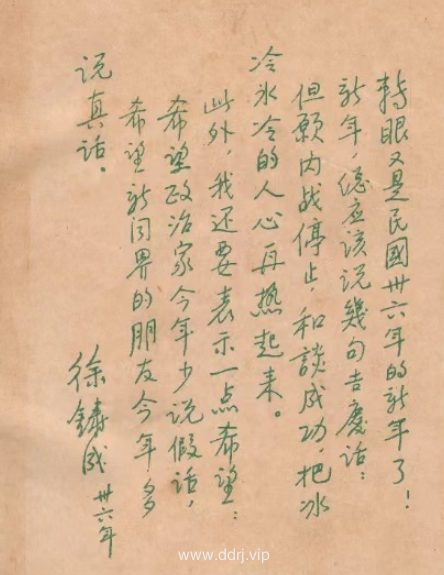 轉眼又是民國卅六年的新年了！
新年，總应该说幾句吉慶话：
但願内战停止，和談成功，把冰
冷氷冷的人心再热起来。
此外，我还要表示一点希望：
希望政治家今年少说假话，
希望新闻界的朋友今年多
说真话。
徐鑄成 卅六年
www.ddrj.vip